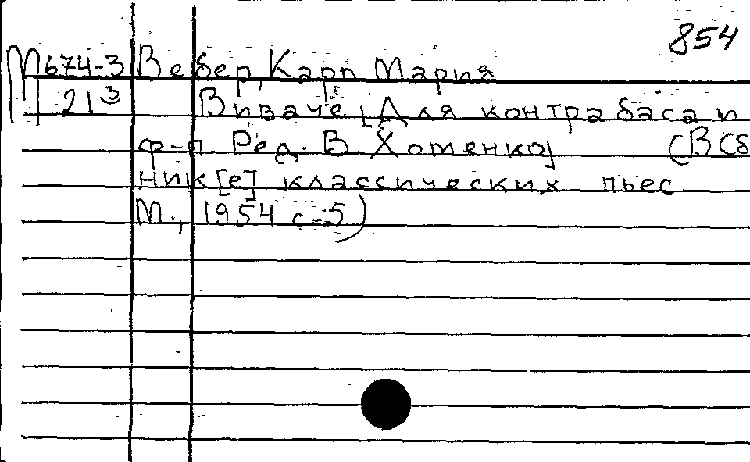 854
М674-3 Вебер, Карл Мария
21³ Виваче [Для контрабаса и
ф-п. Ред. В. Хоменко] (В Сб
ник[е] классических пьес
М., 1954 с-5)